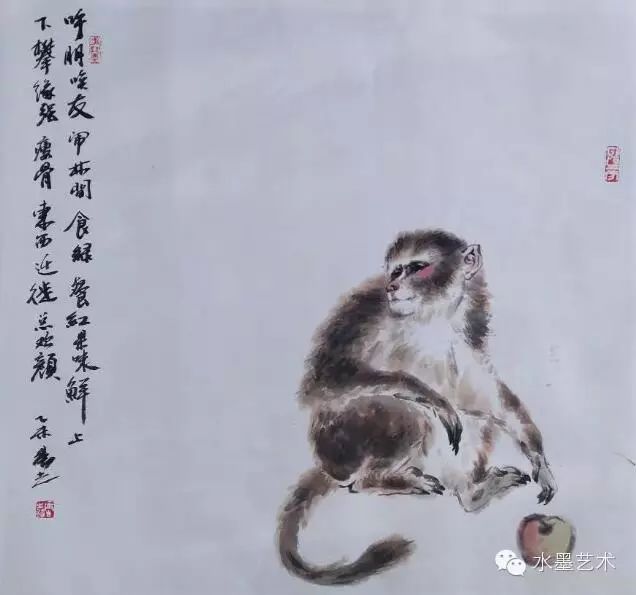 呼朋唤友闹林间食绿餐红果味鲜上
下攀缘强瘦骨东西迁徙总欢颜
乙未
水墨艺术